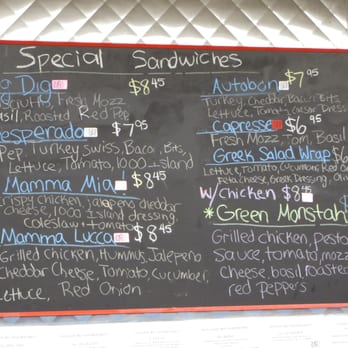 Special Sandwiches
Dig $8.45
Fresh Mozz
Roasted Red Pep
$7.95
Pep, Turkey, Swiss, Baco, Bits,
Lettuce, Tomato, 1000 island
Mamma Mia! $8.45
crispy chicken, jalapeno cheddar
cheese, 1000 island dressing,
coleslaw + tomato
Mamma Lucca $8.45
Grilled chicken, Hummus, Jalepeno
Cheddar Cheese, Tomato, Cucumber,
Lettuce, Red Onion
Autobon $7.95
Turkey, Cheddar, Bacon Bits
Lettuce, Tomato, Caesar Dress
Capresse $6.95
Fresh Mozz, Tom, Basil
Greek Salad Wrap $6
Lettuce, Tomato, Cucumber, Red On
Feta Cheese, Greek Dressing
w/ Chicken $8.45
* Green Monstah $
Grilled chicken, pesto
Sauce, tomato, mozz
Cheese, basil roasted
red peppers